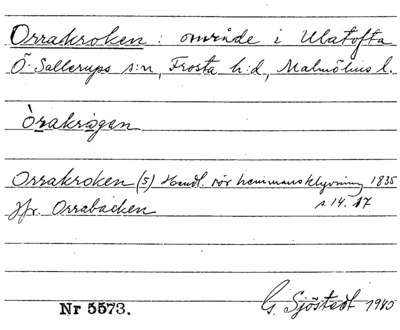 Orrakroken: område i Ulatofta
Ö. Sallerups s:n, Frosta h:d, Malmöhus l.
Òrakrågen
Orrakroken (5) Handl. rör hemmansklyvning 1835
s. 14. 17
Jfr. Orrabacken
Nr 5573. G. Sjöstedt 1940